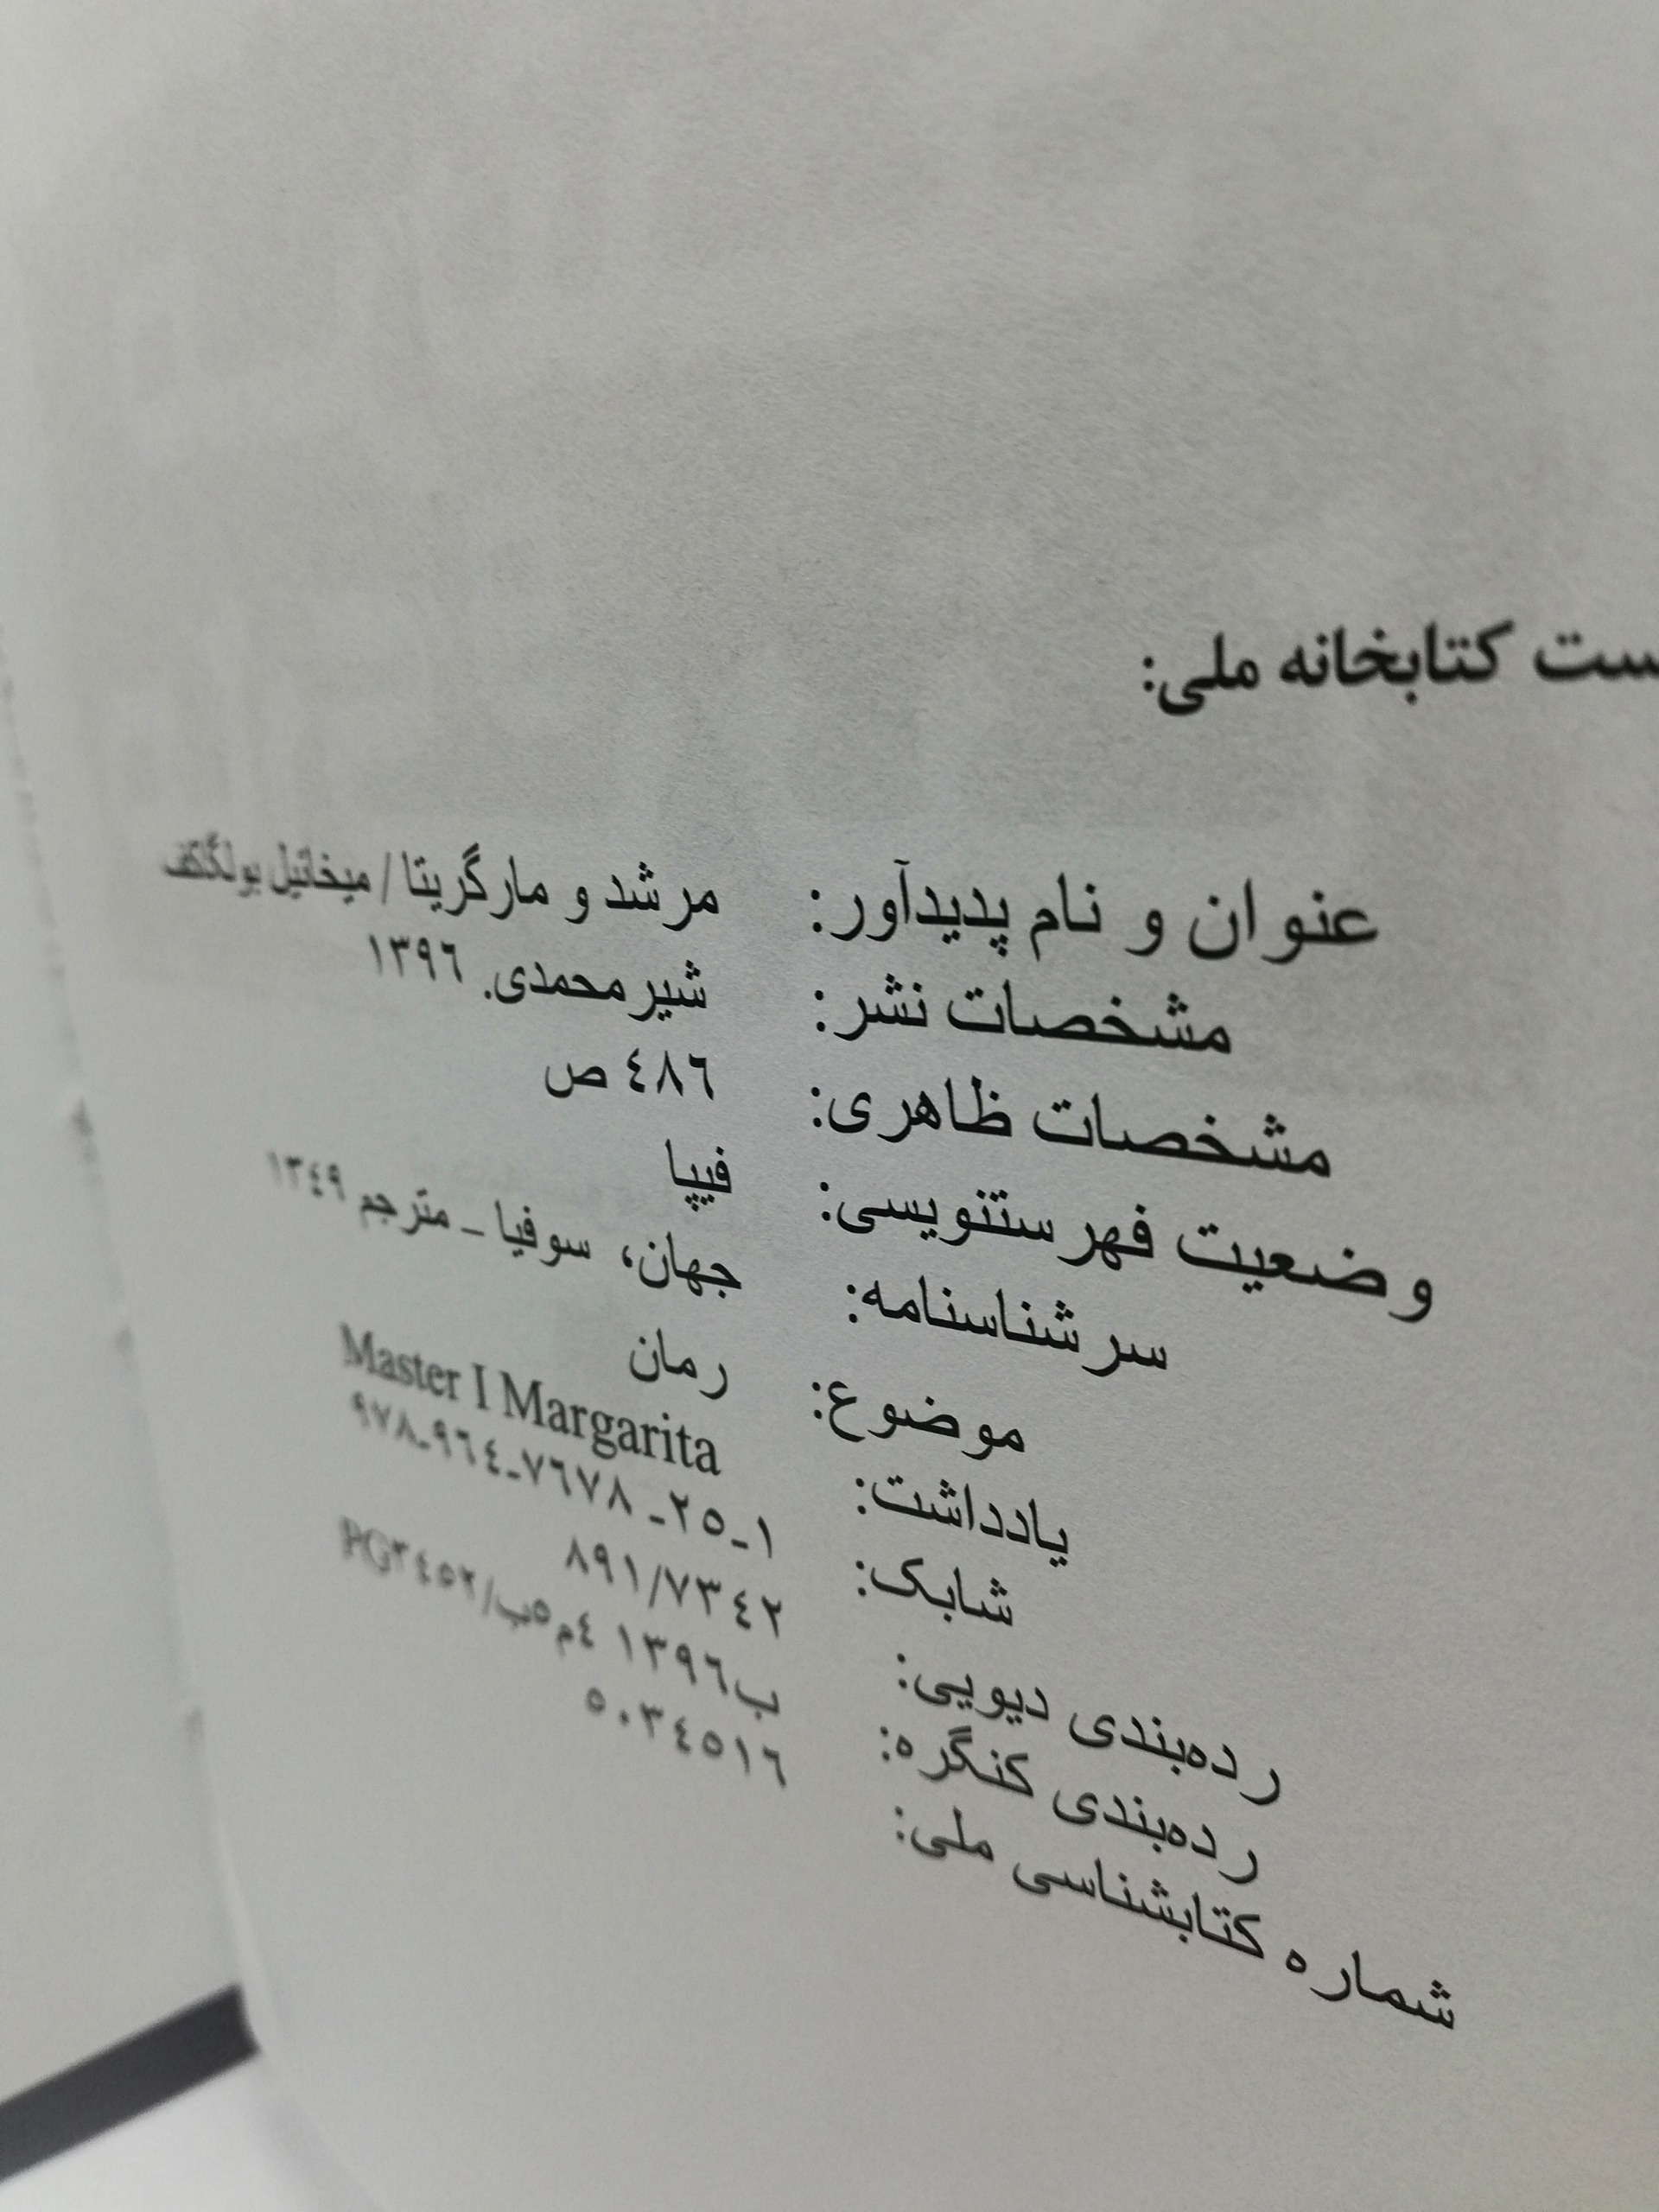 کتابخانه ملی:
عنوان و نام پدیدآور: مرشد و مارگریتا / میخائیل بولگاکف
مشخصات نشر: شیرمحمدی. ۱۳۹٦
مشخصات ظاهری: ٤٨٦ ص
وضعیت فهرستنویسی: فیپا
سرشناسنامه: جهان، سوفیا ـ مترجم ۱۳٤۹
موضوع: رمان
یادداشت: Master I Margarita
شابک: ۹۷۸ـ۹٦٤ـ۷٦۷۸ـ۲٥ـ۱
رده‌بندی دیویی: ۸۹۱/۷۳٤۲
رده‌بندی کنگره: ب۱۳۹٦ ٤م٥ب/PG۳٤٥۲
شماره کتابشناسی ملی: ٥۰۳٤٥۱٦